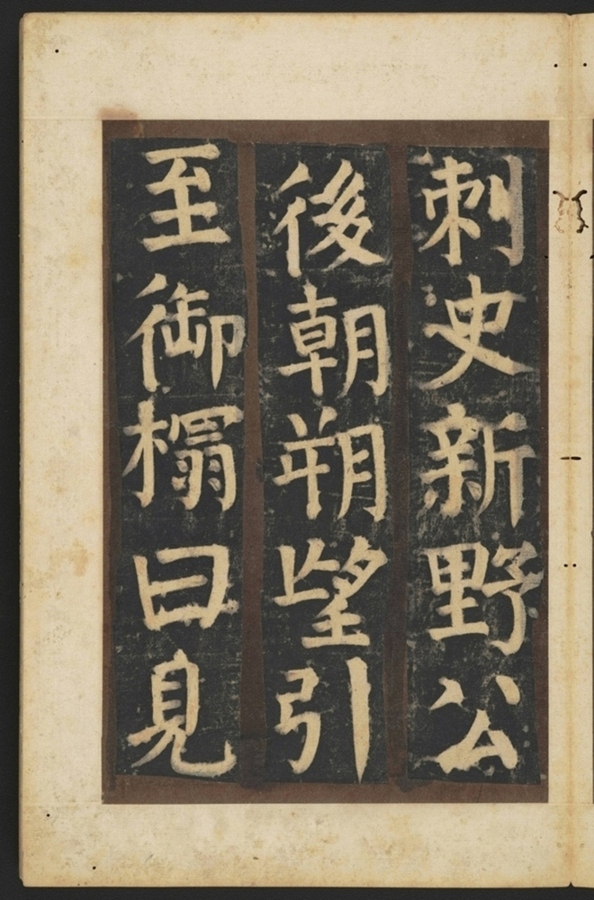 刺史新野公
後朝朔望引
至御榻曰見